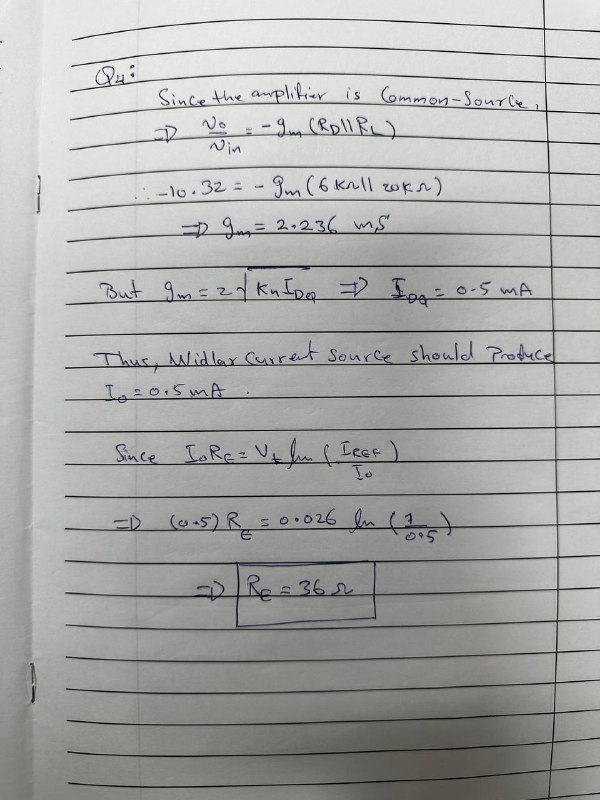 Q4:
Since the amplifier is Common-Source,
⇒ vo/vin = -gm (RD||RL)
∴ -10.32 = -gm (6 KΩ || 20KΩ)
⇒ gm = 2.236 mS
But gm = 2√(Kn IDQ) ⇒ IDQ = 0.5 mA
Thus, Widlar Current Source should Produce
Io = 0.5 mA.
Since Io RE = Vt ln (IREF/Io)
⇒ (0.5) RE = 0.026 ln (1/0.5)
⇒ RE = 36 Ω